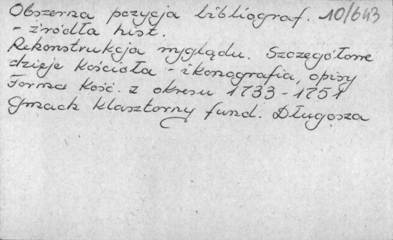 Obszerna pozycja bibliograf. 10/643
- źródła hist.
Rekonstrukcja wyglądu. Szczegółowe
dzieje kościoła - ikonografia, opisy
Forma kość. z okresu 1733-1751
Gmach klasztorny fund. Długosza